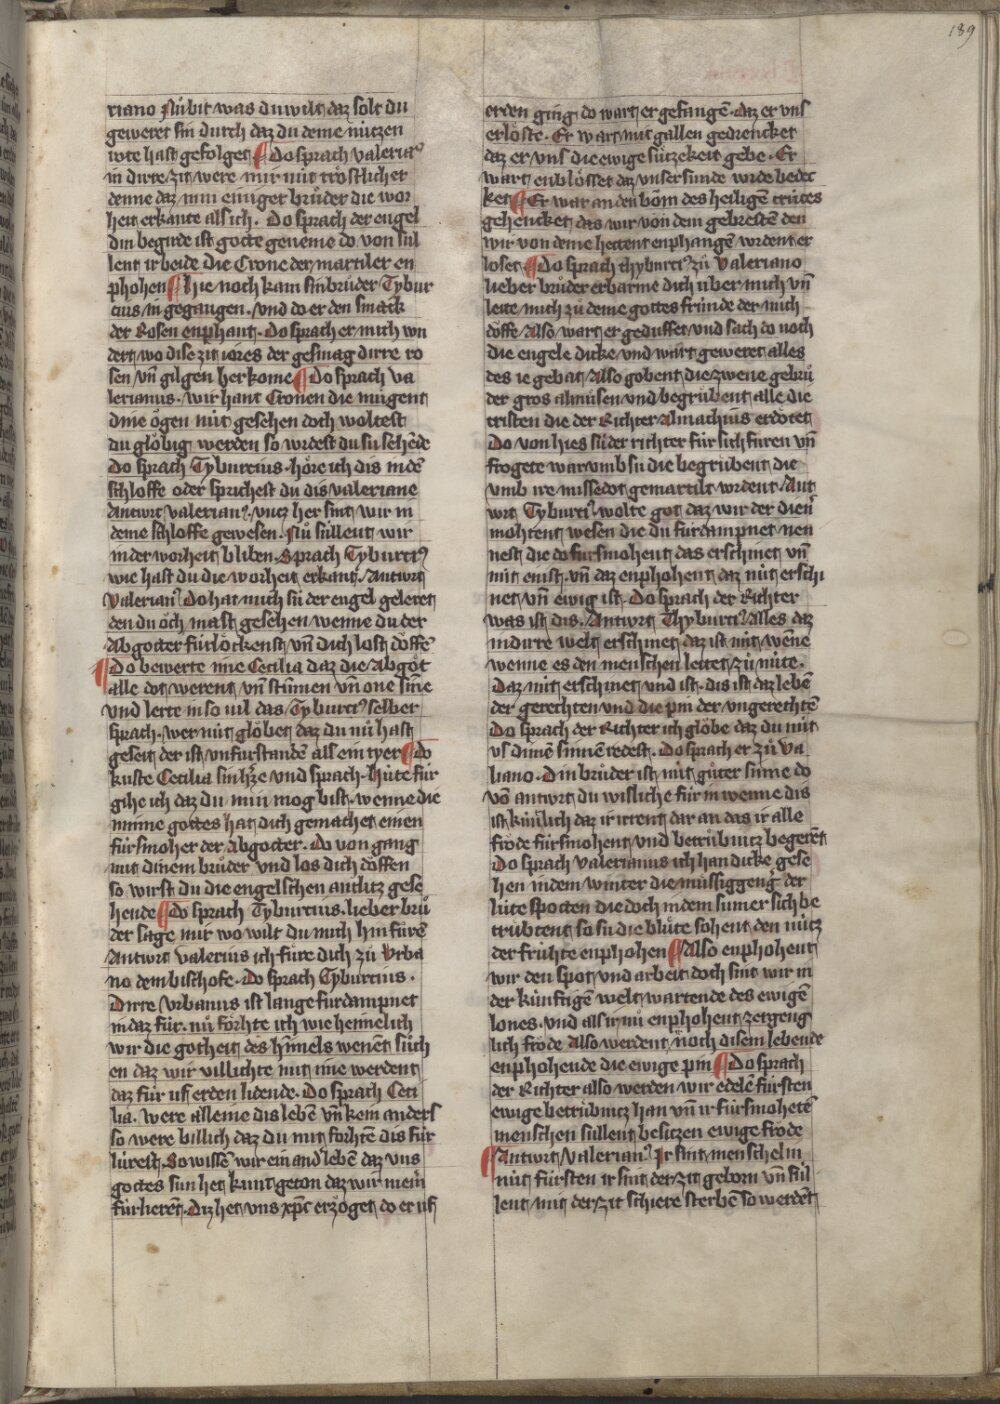 189
riano Nů bit was du wilt daz solt du
geweret sin durch daz du deme nützen
rote hast gefolget ¶ Do sprach valeriaꝰ
in dirre zit were mir nüt tröstlicher
denne daz min einiger brůder die wor
heit erkante als ich. Do sprach der engel
din begirde ist gotte geneme do von sül
lent ir beide die Crone der martiler en
phohen ¶ hie noch kam sin brůder Tybur
cius in gegangen. vnd do er den smack
der Rosen enphant. Do sprach er mich wn
dert wo dise zit iores der gesmag dirre ro
sen vn̄ gilgen herkome ¶ Do sprach va
lerianus. wir hant Cronen die mugent
dine ögen nüt gesehen doch woltest
du glöbig werden so wrdest du su sehēde
Do sprach Tyburcius. höre ich dis in dē
schloffe oder sprichest du dis valeriane
Antwrt valerianꝰ. vntz her sint wir in
deme schloffe gewesen. Nů süllent wir
in der worheit bliben. Sprach Tyburciꝰ
wie hast du die worheit erkant. Antwrt
Valerianꝰ Do hat mich sü der engel geleret
den du öch maht gesehen wenne du der
Abgötter fürlöckenst vn̄ dich lost döffē
¶ Do bewerte nie Cecilia daz die abgöt
alle dot werent vn̄ stümen vn̄ one sīne
vnd lerte in so uil das Tyburciꝰ selber
sprach. wer nüt glöbet daz du nů hast
geseit der ist vnfurstandē als ein tyer ¶ Do
kuste Cecilia sin h̄ze vnd sprach. hüte für
gihe ich daz du min mog bist. wenne die
minne gottes hat dich gemachet einen
fürsmoher der abgötter. Do von gang
mit dinem brůder vnd los dich döffen
so wirst du die engelschen antlitz gese
hende ¶ Do sprach Tyburcius. lieber brů
der sage mir wo wilt du mich hin fürē
Antwrt valerius ich füre dich zů Vrba
no dem bischofe. Do sprach Tyburcius.
Dirre Vrbanus ist lange fürdampnet
in daz für. nů förhte ich wie heimelich
wir die gotheit des hīmels wenēt sůch
en daz wir villichte mit ime werdent
daz für uf erden lidende. Do sprach Ceci
lia. were alleine dis lebē vn̄ kein anders
so were billich daz du mit forhtē dis für
lürest. So wissē wir ein and̓ lebē daz vns
gottes sun het kunt geton daz wir niem̄
fürlierēt. Diz het vns xp̄c erzöget do er uf
erden ging do wart er gefangē. daz er vns
erlöste. Er wart mit gallen gedrencket
daz er vns die ewige süzekeit gebe. Er
wart enblösset daz vnser sunde wrde bedec
ket ¶ Er war an den böm des heiligē crüces
gehencket das wir von dem gebrestē den
wir von deme hertent enphangē wrdent er
löset ¶ Do sprach thyburciꝰ zů Valeriano
lieber brůder erbarme dich über mich vn̄
leite mich zů deme gottes fründe der mich
döffe Also wart er gedüffet vnd sach do noch
die engele dicke vnd wart geweret alles
des ie gebat Also gobent die zwene gebrů
der gros almůsen vnd begrůbent alle die
cristen die der Richter Almachius erdötet
Do von hies sü der richter für sich füren vn̄
frogete warumb sü die begrůbent die
vmb ire missedot gemartilt wrdent. Ant
wrt Tyburciꝰ wolte got daz wir der dien̄
möhtent wesen die du fürdampnet nen
nest die do fürsmohent das erschinet vn̄
nüt enist. vn̄ daz enphohent daz nüt erschi
net vn̄ ewig ist. Do sprach der Richter
was ist dis. Antwrt Thyburciꝰ alles daz
in dirre welt erschinet daz ist nüt wēne
wenne es den menschen leitet zů nüte.
Daz nüt erschinet vnd ist. dis ist daz lebē
der gerechten vnd die pin der vngerechtē
Do sprach der Richter ich glöbe daz du nüt
vs dinē sinnē redest. Do sprach er zů Va
liano. Din brůder ist nüt gůter sinne do
vō antwrt du wisliche für in wenne dis
ist künlich daz ir irrent dar an das ir alle
fröde fürsmohent vnd betrübnitz begerēt
Do sprach valerianus ich han dicke gese
hen in dem winter die müssiggeng̓ der
lüte spotten die doch in dem sumer sich be
trübtent so sü die blůte sohent den nütz
der frühte enphohen ¶ Also enphohent
wir den spot vnd arbeit doch sint wir in
der künftigē welt wartende des ewigē
lones. vnd als ir nů enphohent zergeng
lich fröde Also werdent noch disem lebende
enphohende die ewige pin ¶ Do sprach
der Richter also werden wir edelē fürsten
ewige betrübnitz han vn̄ ir fürsmohetē
menschen süllent besitzen ewige fröde
¶ Antwrt Valerianꝰ Ir sint menschelin
nüt fürsten ir sint der zit geborn vn̄ sül
lent mit der zit schiere sterbē so werdēt